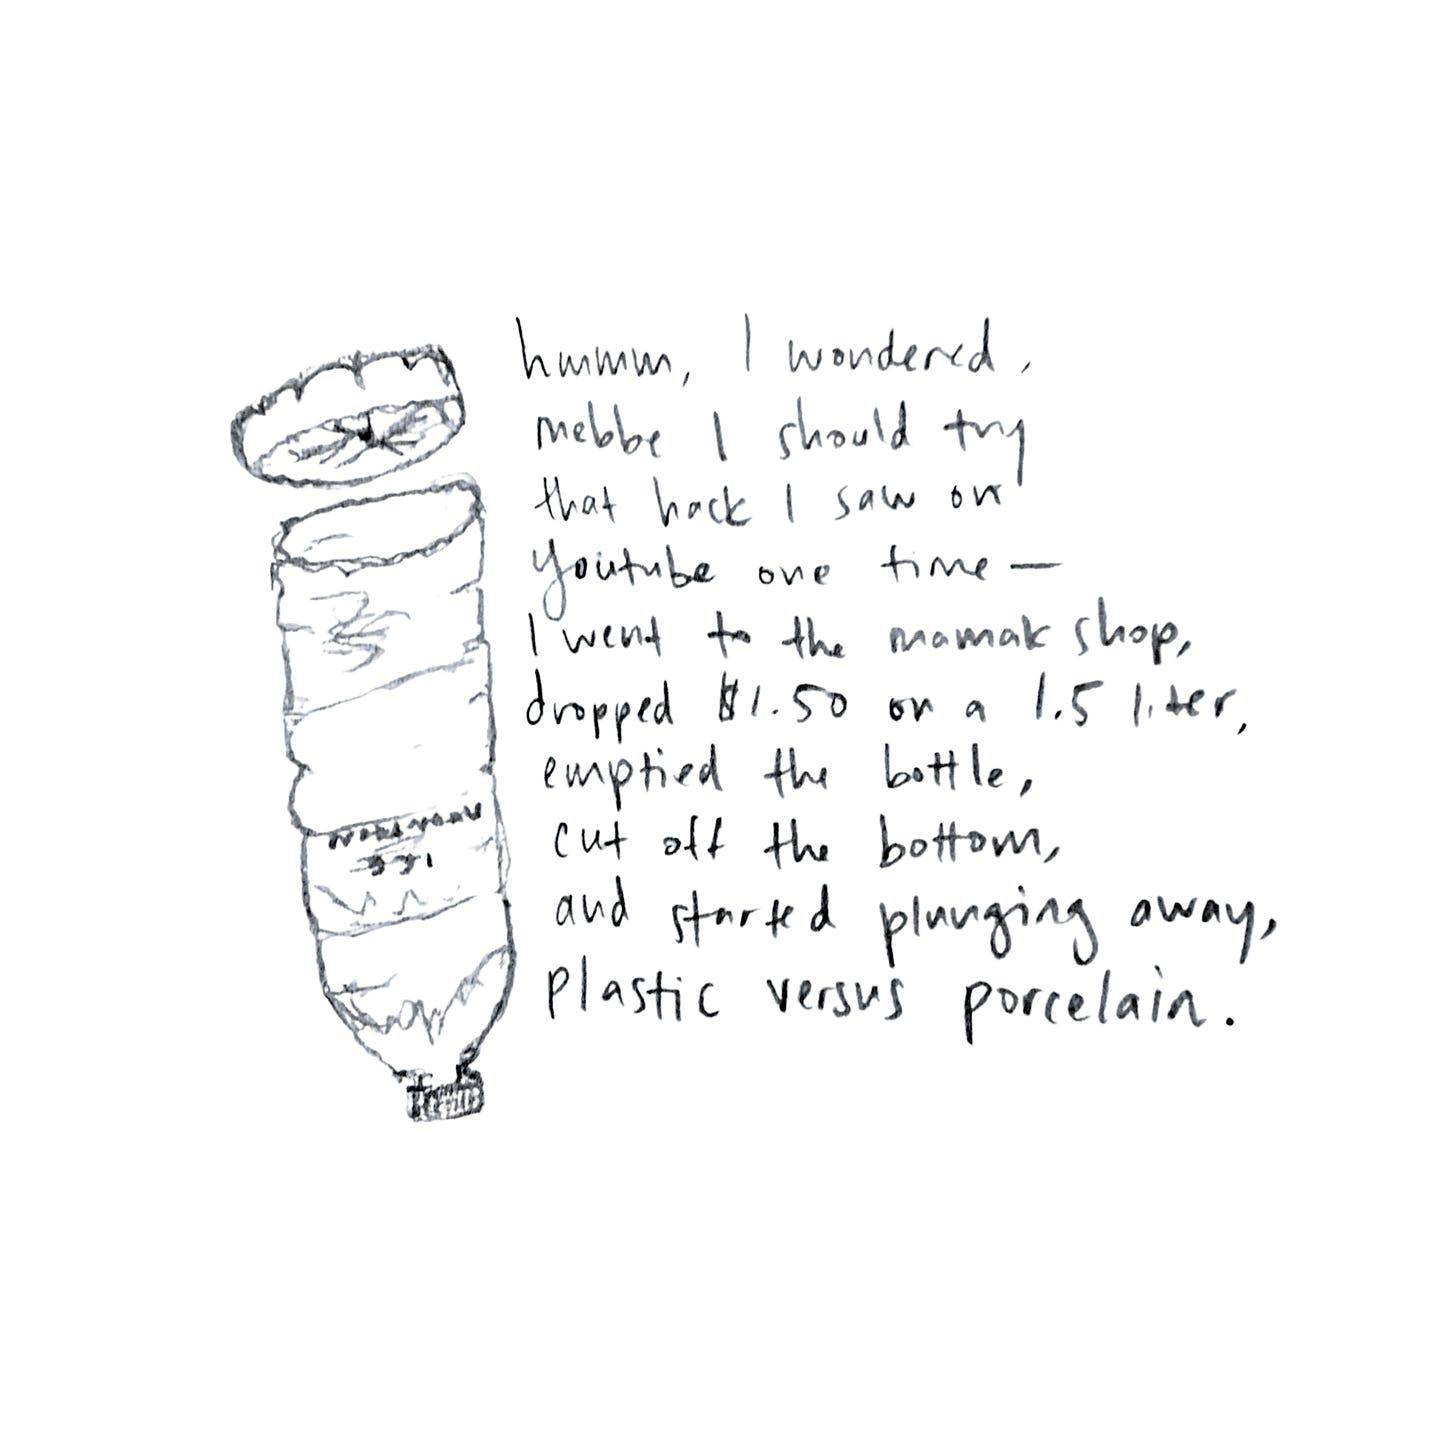 hmmm, I wondered,
mebbe I should try
that hack I saw on
youtube one time—
I went to the mamak shop,
dropped $1.50 on a 1.5 liter,
emptied the bottle,
cut off the bottom,
and started plunging away,
plastic versus porcelain.